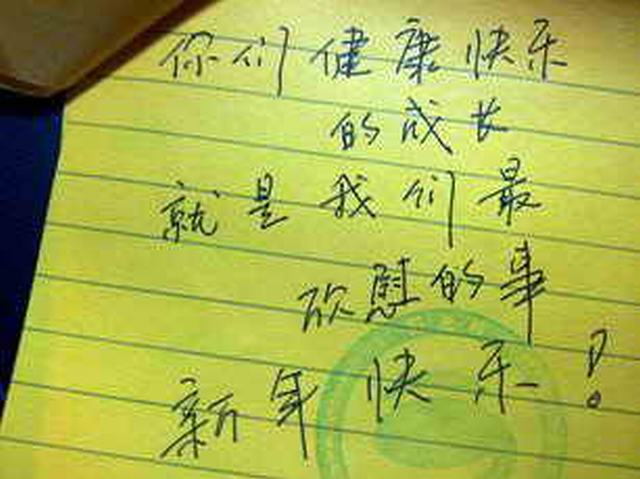 你们健康快乐
的成长
就是我们最
欣慰的事
新年快乐!